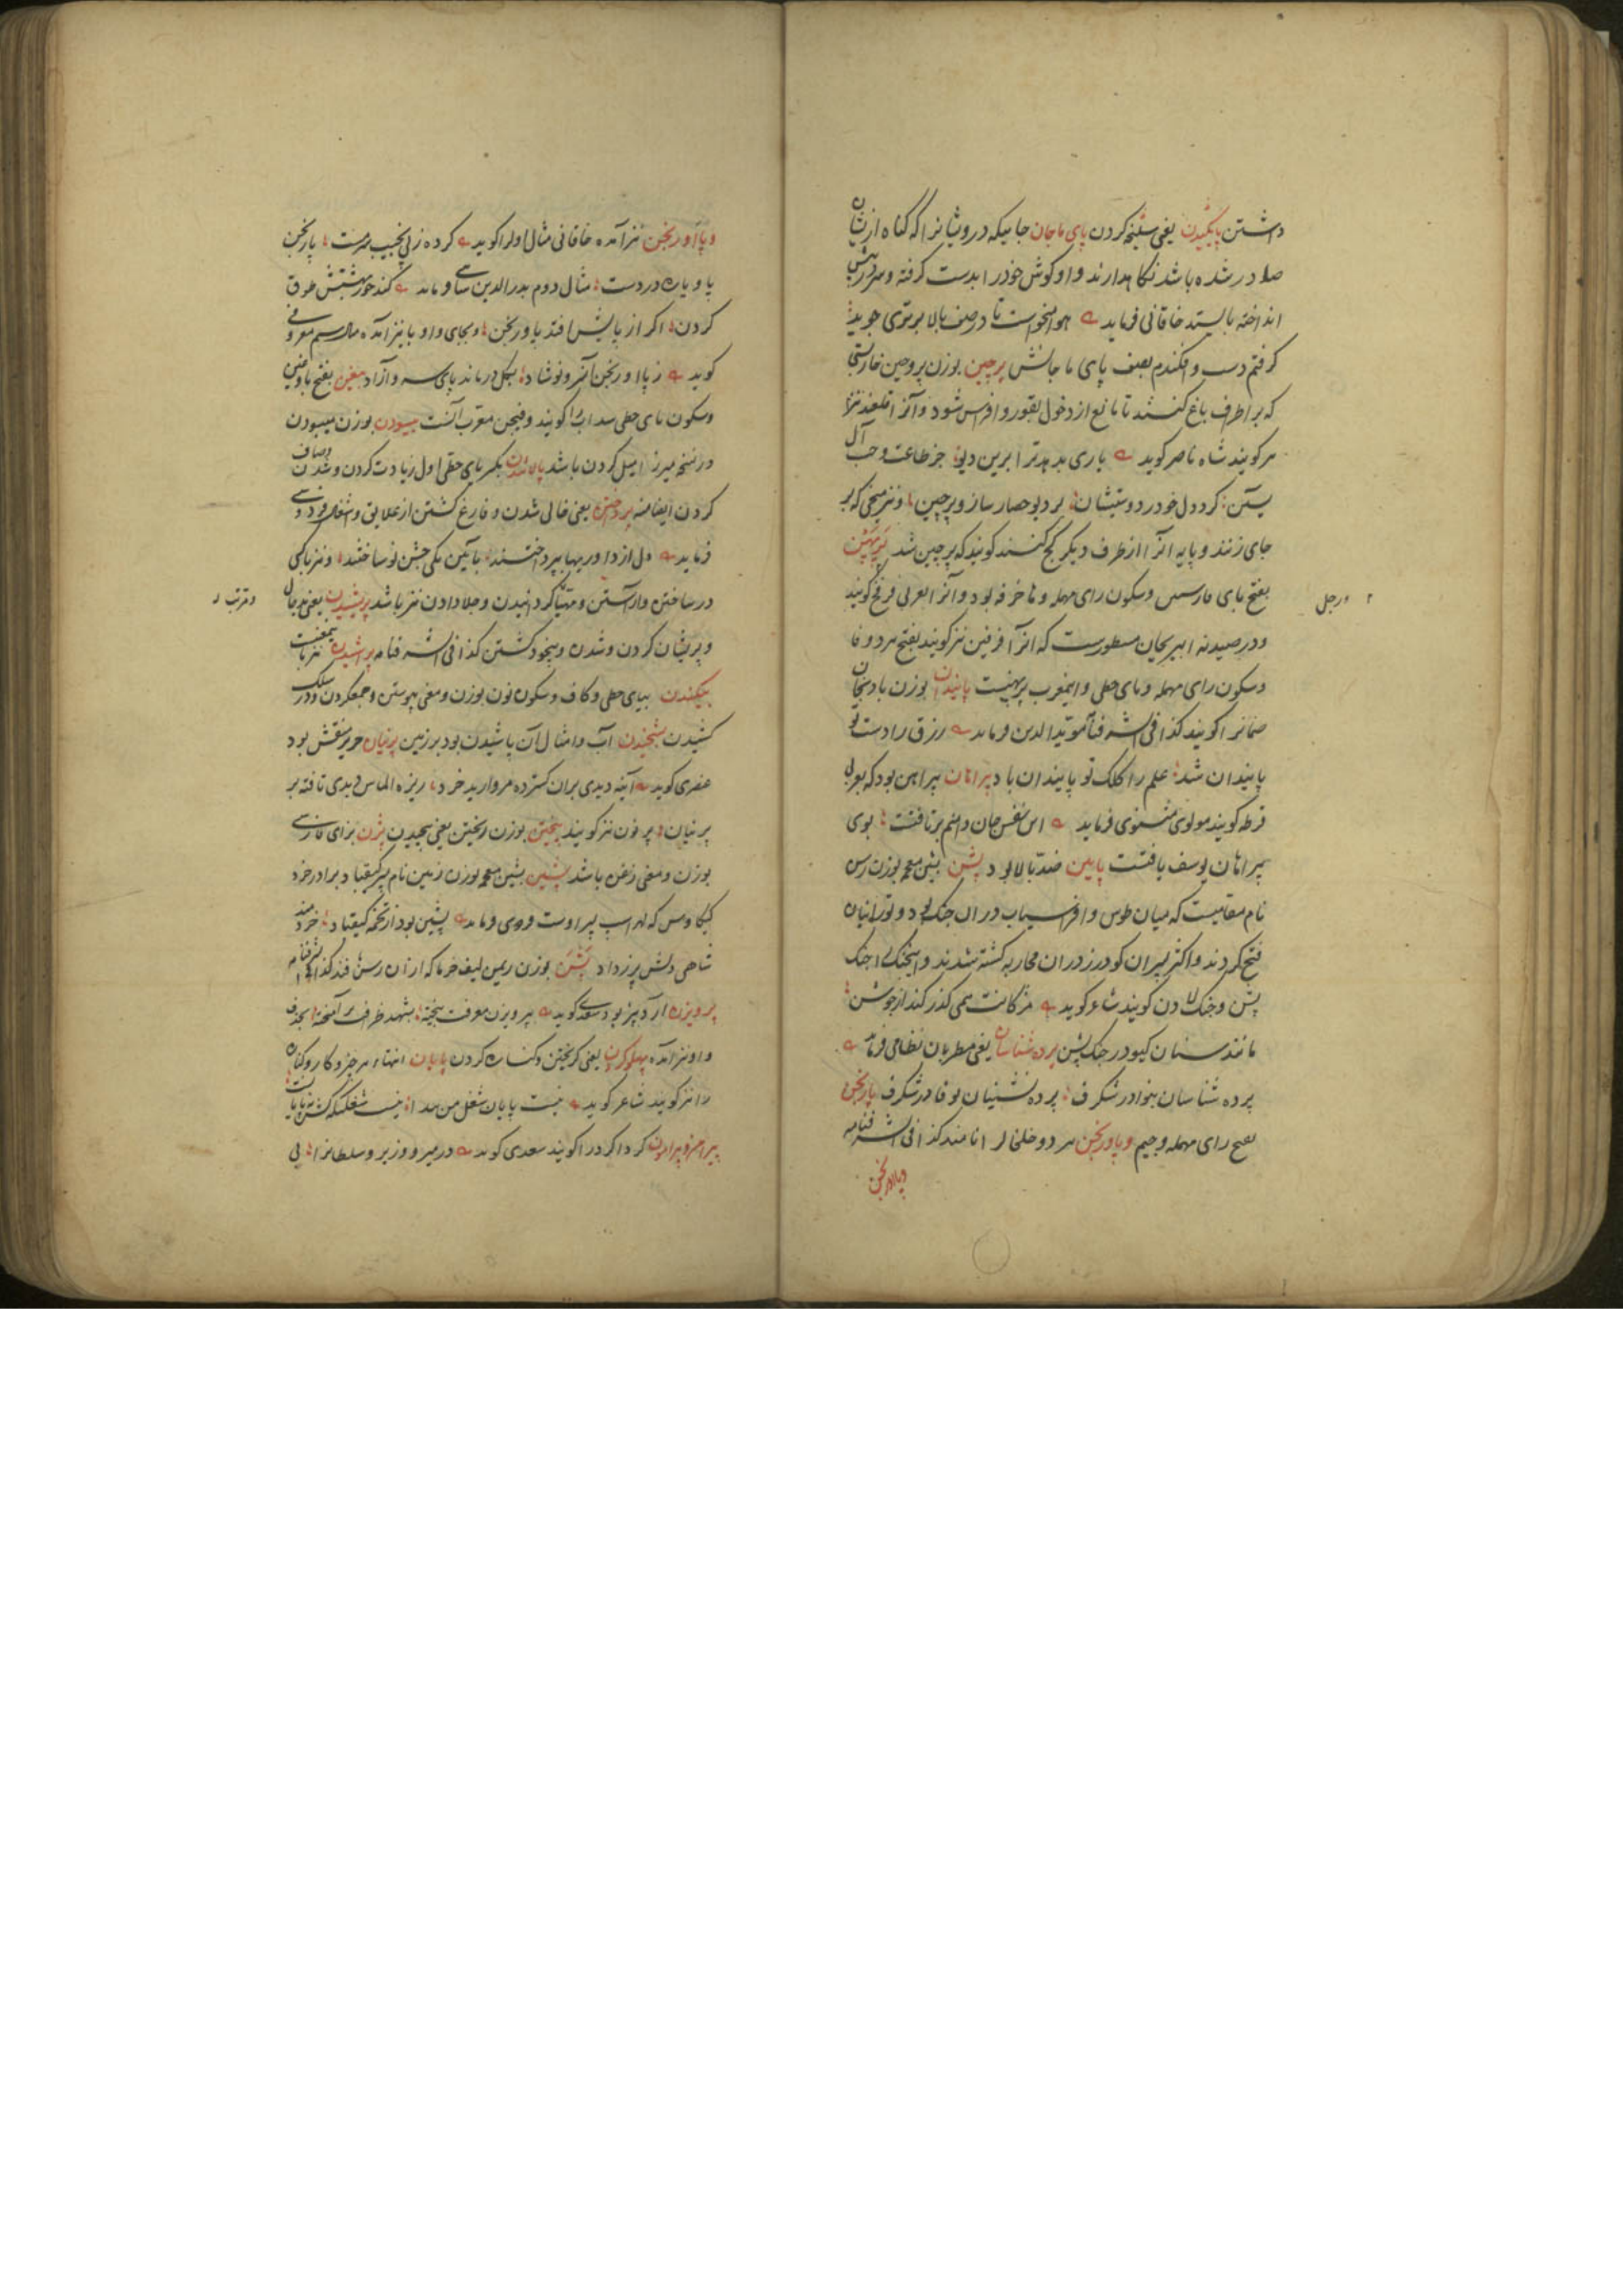 داشتن پاپکیدن یعنی شلنجه کردن پای ماجان جاییکه درویشانرا که کناه ازیشان
صادر شده باشد نکاه دارند و او کوش خود را بدست کرفته و سر درپیش
انداخته بایستد خاقانی فرماید هوا میخواست تا در صف بالا برتری جوید
کرفتم دست و افکندم بصف پای ماجانش پرچین بوزن پروین خاربستی
که بر اطراف باغ کنند تا مانع از دخول شود و آنرا
کویند شاه ناصر کوید یاری بدهدترا برین دیو جز طاعت و حب آل
یسن کرد دل خود ز دوستیشان بر دیو حصار ساز و پرچین و نیز میخی که بر
جای زنند و پایه آنرا از طرف دیکر کج کنند کویند که پرچین شد پرپهن
بفتح بای فارسی و سکون رای مهمله و ها خرفه بود و آنرا بعربی فرفخ کویند
و در صیدنه ابیریحان مسطورست که آنرا فرفین نیز کویند بفتح هر دو فا
و سکون رای مهمله و یای حطی و این معرب پرپهنست پایندان بوزن بادنجان
ضمانرا کویند کذا فی الشرفنامه موید الدین فرماید رزق را دست تو
پایندان شد علم را کلک تو پایندان باد پیراهان پیراهن بود که بعربی
قرطه کویند مولوی مثنوی فرماید این نفس جان دامنم برتافتست بوی
پیراهان یوسف یافتست پایین ضد بالا بود پشن بشین معجمه بوزن رسن
نام مقامیست که میان طوس و افراسیاب در آن جنک بود و تورانیان
فتح کردند و اکثر پسران کودرز در آن محاربه کشته شدند و این جنک را جنک
پشن و جنک لادن کویند شاعر کوید مژکانت همی کذر کند از جوشن
مانند سنان کیو در جنک پشن پرده شناسان یعنی مطربان نظامی فرماید
پرده شناسان بنوا در شکرف پرده نشینان بوفا در شکرف پارنجن
بفتح رای مهمله و جیم و پاورنجن هر دو خلخال را نامند کذا فی الشرفنامه
و پااورنجن
۲ ورجل
و پااورنجن نیز آمده خاقانی مثال اول را کوید کرده زنی پارنجن
پا و یاره در دست مثال دوم بدرالدین شاشی فرماید کند حور بهشتیش طوق
کردن اکر از پایش افتد پاورنجن و بجای واو با نیز آمده معروفی
کوید ز پااورنجن آنسرو نوشاد بکل درماند پای سرو آزاد پیغن بفتح با و غین
و سکون یای حطی سداب را کویند و فیجن معرب آنست پیسودن بوزن میسودن
در نسخه میرزا میل کردن باشد پالاییدن بکسر یای حطی اول زیادت کردن و شدن و صاف
کردن ایضا منه پرداختن یعنی خالی شدن و فارغ کشتن از علایق و اشغال فردوسی
فرماید دل از داوریها بپرداختند بآیین یکی جشن نو ساختند و نیز باکسی
در ساختن و آراستن و مهیا کردانیدن و جلا دادن نیز باشد پریشیدن یعنی بدحال
و پریشان کردن و شدن و بیخود کشتن کذا فی الشرفنامه پراشیدن نیز باینمعنیست
پیکندن بیای حطی و کاف و سکون نون بوزن و معنی پیوستن و جمع کردن و در سلک
کشیدن پشنجیدن آب و امثال آن پاشیدن بود بر زمین پرنیان حریر منقش بود
عنصری کوید آینه دیدی بران کسترده مروارید خرد ریزه الماس دیدی تافته بر
پرنیان پرنون نیز کویند پیختن بوزن ریختن یعنی پیچیدن پژن بزای فارسی
بوزن و معنی زغن باشد پشین بشین معجمه بوزن زمین نام پسر کیقباد برادر خرد
کیکاوس که لهراسب پسر اوست فردوسی فرماید پشین بود از تخمه کیقباد خردمند
شاهی دلش پر ز داد پشن بوزن لیف خرما که از آن رسن بافند کذا فی الشرفنامه
پرویزن آردبیز بود سعدی کوید پرویزن معرفت بیخته بشهد ظرافت برآمیخته بحذف
واو نیز آمده پهلوکردن یعنی کریختن و کناره کردن پایان انتهاء هر چیز و کار و کناره
را نیز کویند شاعر کوید نیست پایان شغل من پیدا نیست شغلیکه کش نه پایانست
پیرامن و پیرامون کرداکرد را کویند سعدی کوید در میر و وزیر و سلطانرا بی
و ترتیب